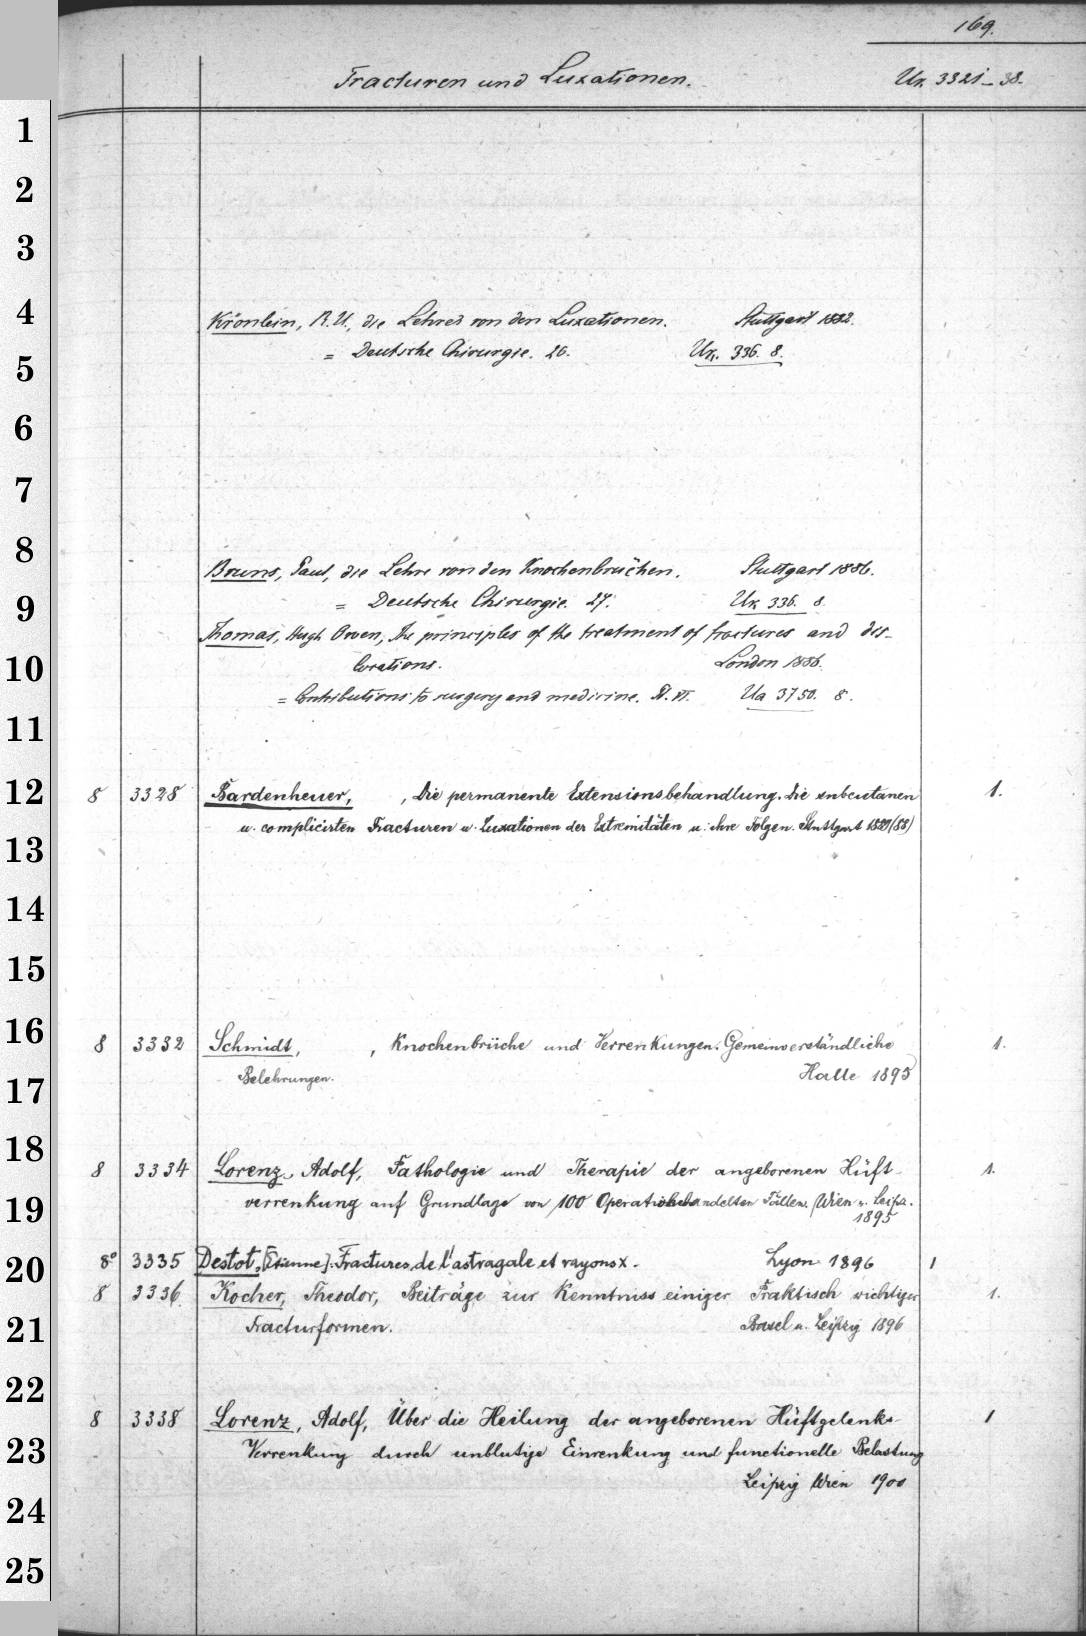 169.
Fracturen und Luxationen. Ux. 3321–38.
1
2
3
4
Krönlein, R. U., die Lehre von den Luxationen. Stuttgart 1882.
= Deutsche Chirurgie. 26. Ux. 336. 8.
5
6
7
8
Bruns, Paul, die Lehre von den Knochenbrüchen. Stuttgart 1886.
= Deutsche Chirurgie. 27. Ux 336. 8.
9
Thomas, Hugh Owen, The principles of the treatment of fractures and dis-
locations. London 1886.
10
= Contributions to surgery and medicine. Pt. VI. Ua 3750. 8.
11
12
8 3328 Bardenheuer, , Die permanente Extensionsbehandlung. Die subcutanen 1.
u. complicirten Fracturen u. Luxationen der Extremitäten u. ihre Folgen. Stuttgart 1889 (88)
13
14
15
16
8 3332 Schmidt, , Knochenbrüche und Verrenkungen. Gemeinverständliche 1.
Belehrungen. Halle 1895
17
18
8 3334 Lorenz, Adolf, Pathologie und Therapie der angeborenen Hüft- 1.
verrenkung auf Grundlage von 100 Operativ behandelten Fällen. Wien u. Leipz.
1895
19
20
8° 3335 Destot, [Étienne]. Fractures de l'astragale et rayons x. Lyon 1896 1
8 3336. Kocher, Theodor, Beiträge zur Kenntniss einiger Praktisch wichtiger 1.
Fracturformen. Basel u. Leipzig 1896
21
22
8 3338 Lorenz, Adolf, Über die Heilung der angeborenen Hüftgelenks- 1
Verrenkung durch unblutige Einrenkung und functionelle Belastung
23
Leipzig Wien 1900
24
25